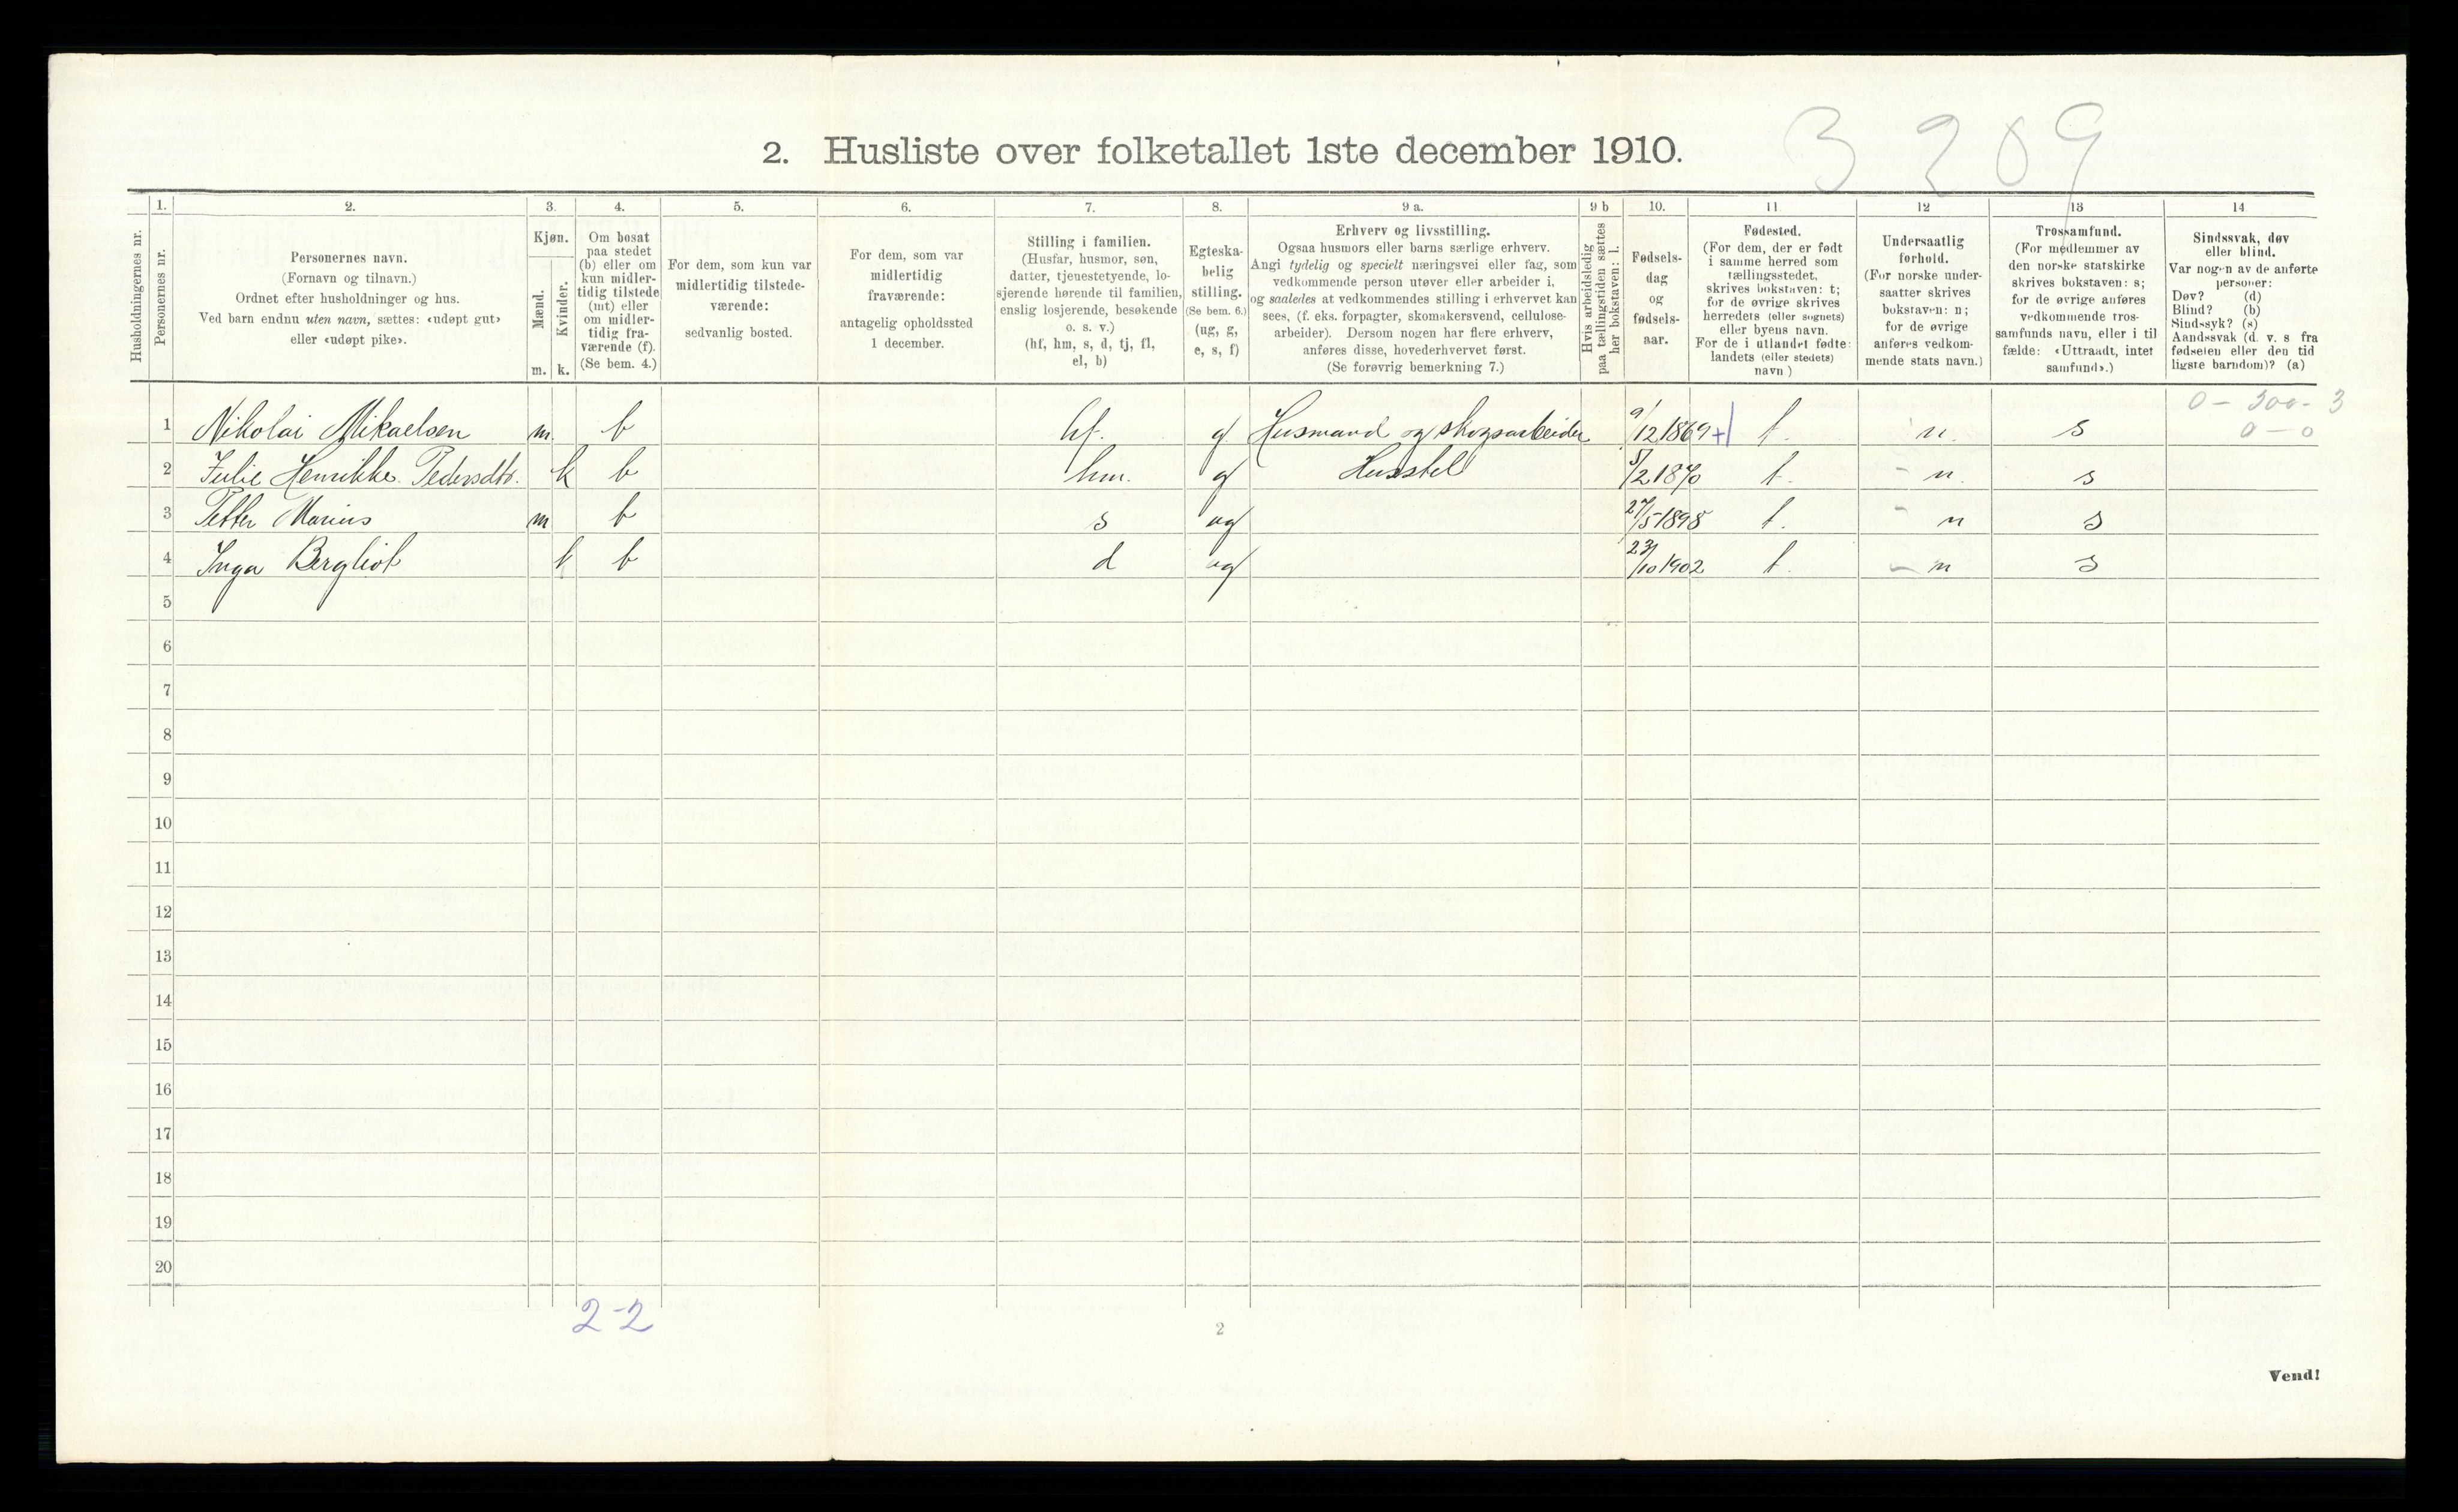 3 209
2. Husliste over folketallet 1ste december 1910.
1. 2. 3. 4. 5. 6. 7. 8. 9 a. 9 b 10. 11 12 13 14
Husholdningernes nr.
Personernes nr.
Personernes navn.
(Fornavn og tilnavn.)
Ordnet efter husholdninger og hus.
Ved barn endnu uten navn, sættes: «udøpt gut»
eller «udøpt pike».
Kjøn.
Mænd.
Kvinder.
m. k.
Om bosat
paa stedet
(b) eller om
kun midler-
tidig tilstede
(mt) eller
om midler-
tidig fra-
værende (f).
(Se bem. 4.)
For dem, som kun var
midlertidig tilstede-
værende:
sedvanlig bosted.
For dem, som var
midlertidig
fraværende:
antagelig opholdssted
1 december.
Stilling i familien.
(Husfar, husmor, søn,
datter, tjenestetyende, lo-
sjerende hørende til familien,
enslig losjerende, besøkende
o. s. v.)
(hf, hm, s, d, tj, fl,
el, b)
Egteska-
belig
stilling.
(Se bem. 6.)
(ug, g,
e, s, f)
Erhverv og livsstilling.
Ogsaa husmors eller barns særlige erhverv.
Angi tydelig og specielt næringsvei eller fag, som
vedkommende person utøver eller arbeider i,
og saaledes at vedkommendes stilling i erhvervet kan
sees, (f. eks. forpagter, skomakersvend, cellulose-
arbeider). Dersom nogen har flere erhverv,
anføres disse, hovederhvervet først.
(Se forøvrig bemerkning 7.)
Hvis arbeidsledig
paa tællingstiden sættes
her bokstaven: l.
Fødsels-
dag
og
fødsels-
aar.
Fødested.
(For dem, der er født
i samme herred som
tællingsstedet,
skrives bokstaven: t;
for de øvrige skrives
herredets (eller sognets)
eller byens navn.
For de i utlandet fødte:
landets (eller stedets)
navn)
Undersaatlig
forhold.
(For norske under-
saatter skrives
bokstaven: n;
for de øvrige
anføres vedkom-
mende stats navn.)
Trossamfund.
(For medlemmer av
den norske statskirke
skrives bokstaven: s;
for de øvrige anføres
vedkommende tros-
samfunds navn, eller i til
fælde: «Uttraadt, intet
samfund».)
Sindssvak, døv
eller blind.
Var nogen av de anførte
personer:
Døv? (d)
Blind? (b)
Sindssyk? (s)
Aandssvak (d. v. s fra
fødselen eller den tid
ligste barndom)? (a)
0 - 300 - 3
1 Nikolai Mikaelsen m. b hf. g Husmand og skogsarbeider 9/12 1869 + t. n. s 0 - 0
2 Julie Henrikke Pedersdtr. k b hm. g Husstel 5/2 1870 t. n. s
3 Petter Marius m b s ug 27/5 1898 t. n s
4 Inga Bergliot k b d ug 23/10 1902 t. n s
5
6
7
8
9
10
11
12
13
14
15
16
17
18
19
20
2-2
2
Vend!